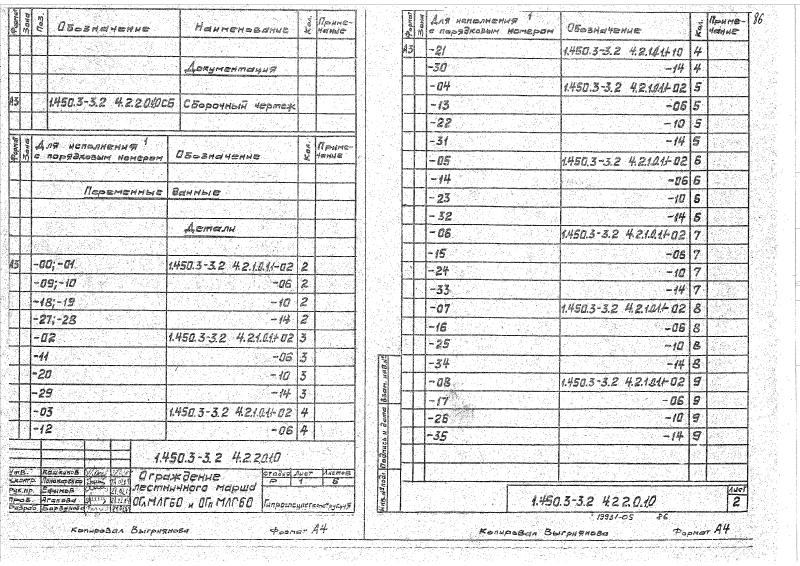 Формат Зона Поз. Обозначение Наименование Кол. Примечание
Документация
А3 1.450.3-3.2 4.2.2.0.10СБ Сборочный чертеж
Формат Зона Для исполнения 1 с порядковым номером Обозначение Кол. Примечание
Переменные данные
Детали
А3 -00; -01 1.450.3-3.2 4.2.1.0.1.1-02 2
-09; -10 -06 2
-18; -19 -10 2
-27; -28 -14 2
-02 1.450.3-3.2 4.2.1.0.1.1-02 3
-11 -06 3
-20 -10 3
-29 -14 3
-03 1.450.3-3.2 4.2.1.0.1.1-02 4
-12 -06 4
1.450.3-3.2 4.2.2.0.10
Ограждение
лестничного марша
ОГл МЛГ60 и ОГп МЛГ60
Стадия Лист Листов
Р 1 6
Утв.
Рук.пр. Ефимов
Пров. Агапова
Разраб.
Копировал Выгриянова Формат А4
86
Формат Зона Для исполнения 1 с порядковым номером Обозначение Кол. Примечание
А3 -21 1.450.3-3.2 4.2.1.0.1.1-10 4
-30 -14 4
-04 1.450.3-3.2 4.2.1.0.1.1-02 5
-13 -06 5
-22 -10 5
-31 -14 5
-05 1.450.3-3.2 4.2.1.0.1.1-02 6
-14 -06 6
-23 -10 6
-32 -14 6
-06 1.450.3-3.2 4.2.1.0.1.1-02 7
-15 -06 7
-24 -10 7
-33 -14 7
-07 1.450.3-3.2 4.2.1.0.1.1-02 8
-16 -06 8
-25 -10 8
-34 -14 8
-08 1.450.3-3.2 4.2.1.0.1.1-02 9
-17 -06 9
-26 -10 9
-35 -14 9
Инв.№ подл. Подпись и дата Взам. инв.№
1.450.3-3.2 4.2.2.0.10
Лист
2
19931-05 86
Копировал Выгриянова Формат А4